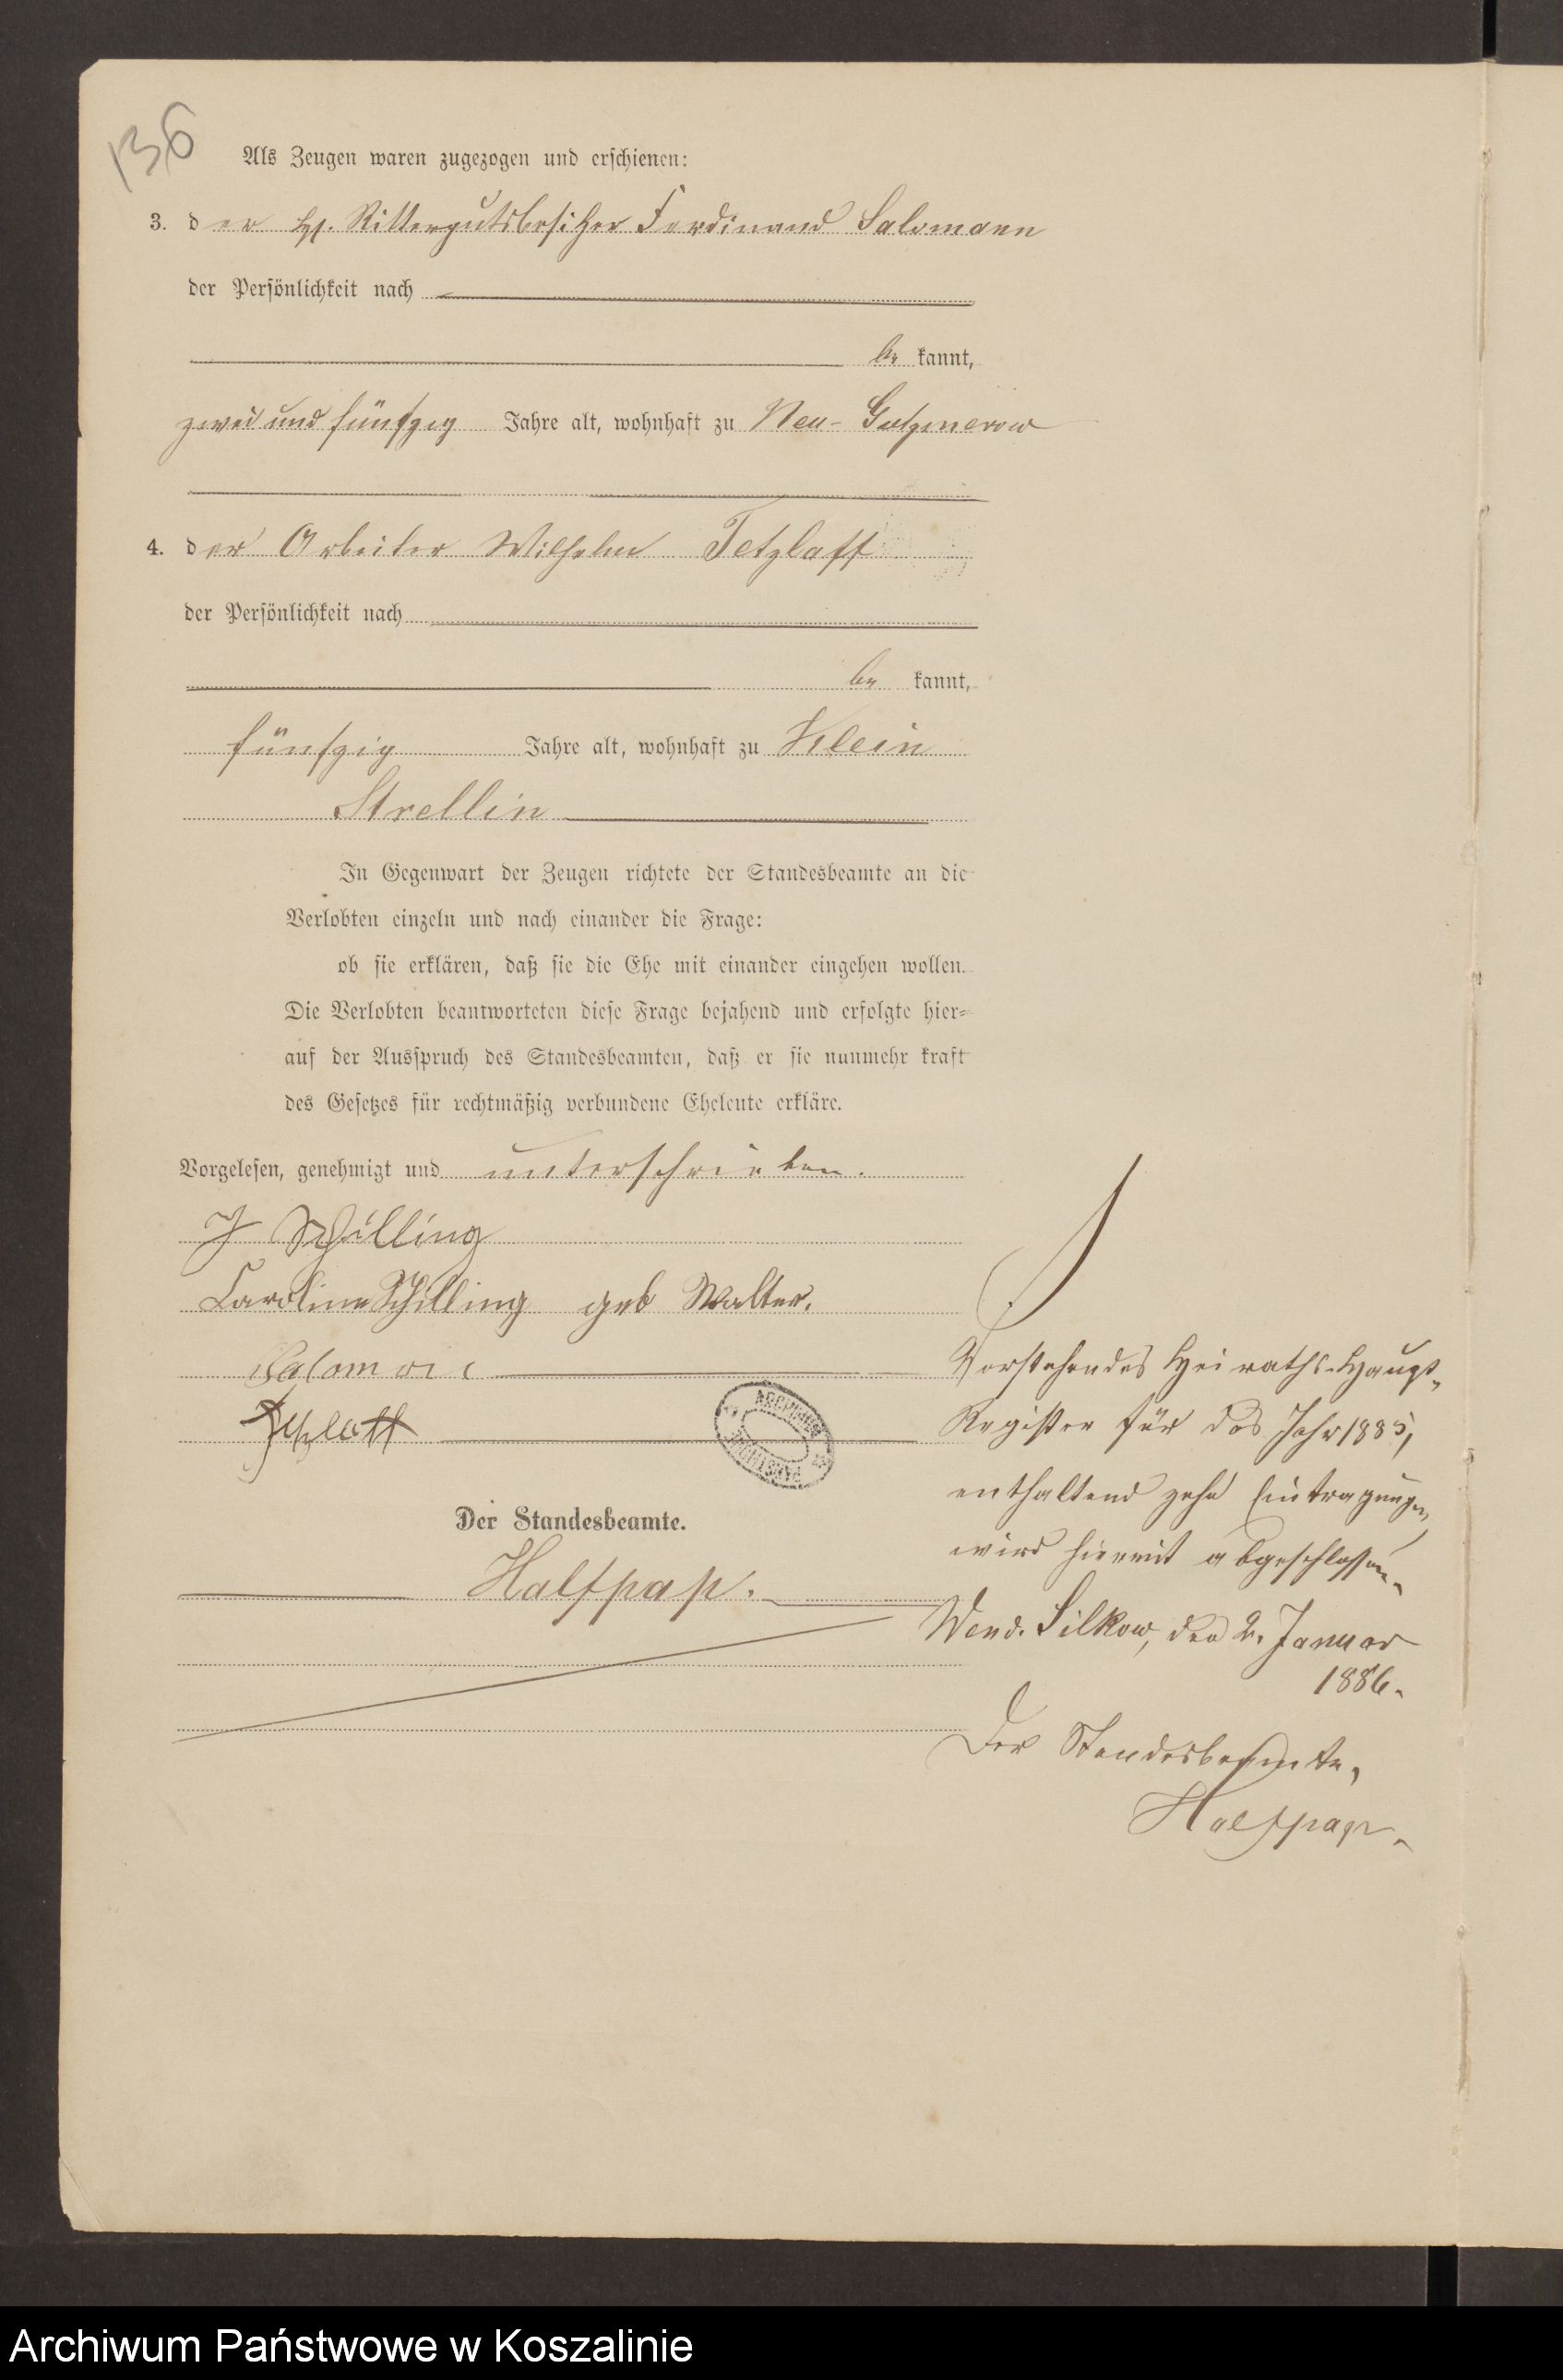 136
Als Zeugen waren zugezogen und erschienen:
3. der Rittergutsbesitzer Ferdinand Salomonn
der Persönlichkeit nach
be kannt,
zwei und fünfzig Jahre alt, wohnhaft zu Neu-Gutzmerow
4. der Arbeiter Wilhelm Tetzlaff
der Persönlichkeit nach
be kannt,
fünfzig Jahre alt, wohnhaft zu Klein
Strellin
In Gegenwart der Zeugen richtete der Standesbeamte an die
Verlobten einzeln und nach einander die Frage:
ob sie erklären, daß sie die Ehe mit einander eingehen wollen.
Die Verlobten beantworteten diese Frage bejahend und erfolgte hier-
auf der Ausspruch des Standesbeamten, daß er sie nunmehr kraft
des Gesetzes für rechtmäßig verbundene Eheleute erkläre.
Vorgelesen, genehmigt und unterschrieben.
Schilling
Caroline Schilling geb Walter.
Salomon
Tetzlaff
Der Standesbeamte.
Halfpap.
Vorstehendes Heiraths-Haupt-
Register für das Jahr 1885,
enthaltend zehn Eintragungen,
wird hiermit abgeschlossen.
Wend. Silkow, den 2. Januar
1886.
Der Standesbeamte,
Halfpap.
Archiwum Państwowe w Koszalinie